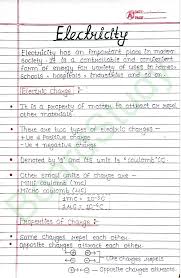 Electricity
Electricity has an important place in modern
society. It is a controllable and convenient
form of energy for variety of uses in homes,
schools, hospitals, industries and so on.
Electric charge :-
It is a property of matter to attract or repel
other materials.
There are two types of electric charges -
+ve & positive charge
-ve & Negative charge
Denoted by 'Q' and its unit is "coulomb" (C)
Other small units of charge are -
Milli coulomb (mC)
Micro coulomb (μC)
1mC = 10⁻³C
1μC = 10⁻⁶C
Properties of charge :-
Same charges repel each other.
Opposite charges attract each other.
like charges repels
opposite charges attracts